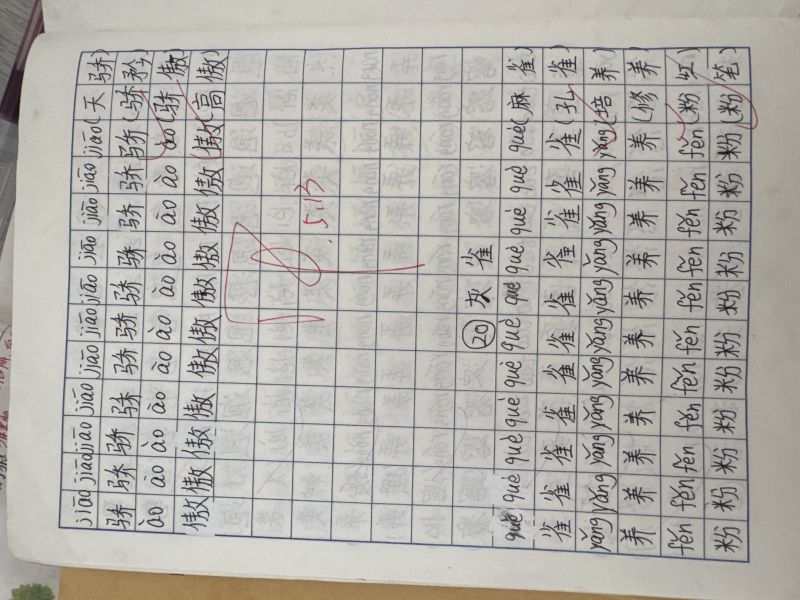 jiāo jiāo jiāo jiāo jiāo jiāo jiāo jiāo jiāo jiāo jiāo (天骄)
骄 骄 骄 骄 骄 骄 骄 骄 骄 骄 骄 (骄矜)
ào ào ào ào ào ào ào ào ào ào ào (骄傲)
傲 傲 傲 傲 傲 傲 傲 傲 傲 傲 傲 (高傲)
5.13
20 灰雀
què què què què què què què què què què què (麻雀)
雀 雀 雀 雀 雀 雀 雀 雀 雀 雀 雀 (孔雀)
yǎng yǎng yǎng yǎng yǎng yǎng yǎng yǎng yǎng yǎng yǎng (培养)
养 养 养 养 养 养 养 养 养 养 养 (修养)
fěn fěn fěn fěn fěn fěn fěn fěn fěn fěn fěn (粉红)
粉 粉 粉 粉 粉 粉 粉 粉 粉 粉 粉 (粉笔)